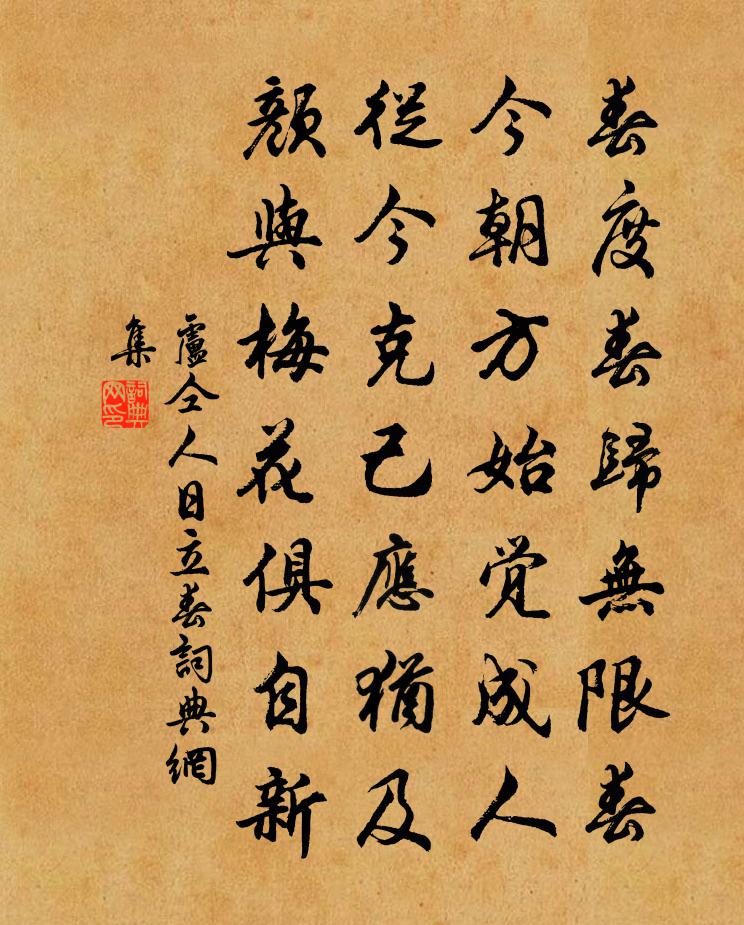 春度春歸無限春
今朝方始覺成人
從今克己應猶及
顏與梅花俱自新
盧仝人日立春詞典網
集
詞典网印